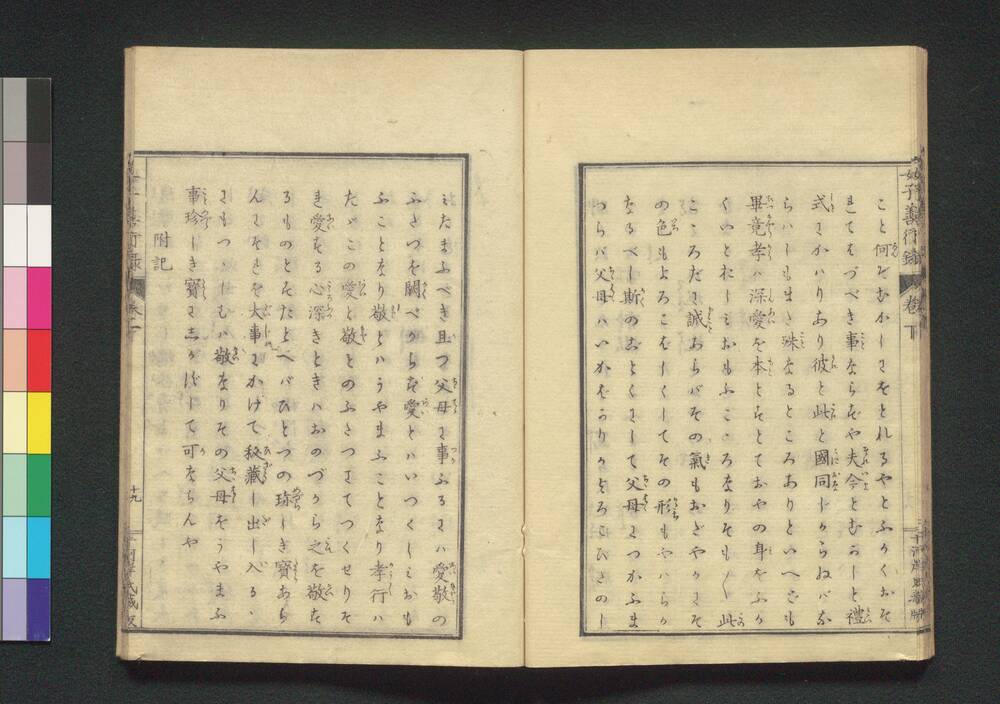 こと何ぞむかしさをとれるやとふかくおそ
まてはづべき事ならずや夫今とむかしと禮
式さかハりあり彼と此と國同じからねバな
らハしもまさ殊なるところありといへども
畢竟孝ハ深愛を本とすとておやの身をふか
くいとおしミおもふこゝろなりそも〳〵此
こゝろだに誠あらバその氣もおだやかにそ
の色もよろこばしくしてその形もやハらか
なるべし斯のごとくにして父母につかふま
つらバ父母ハいかばかりかよろこびたのし
ミたまふべき且つ父母に事ふるにハ愛敬の
ふたつを闕べからず愛とハいつくしミおも
ふことなり敬とハうやまふことなり孝行ハ
たゞこの愛と敬とのふたつにてつくせりそ
き愛する心深きときハおのづから之を敬す
るものとすたとへバひとつの珎しき寶あら
んにそを大事にかけて秘藏し出し入るゝ
にもつゝしむハ敬なりその父母をうやまふ
事珍しき寶に志かずして可ならんや
附記
善行録
十九
卷下